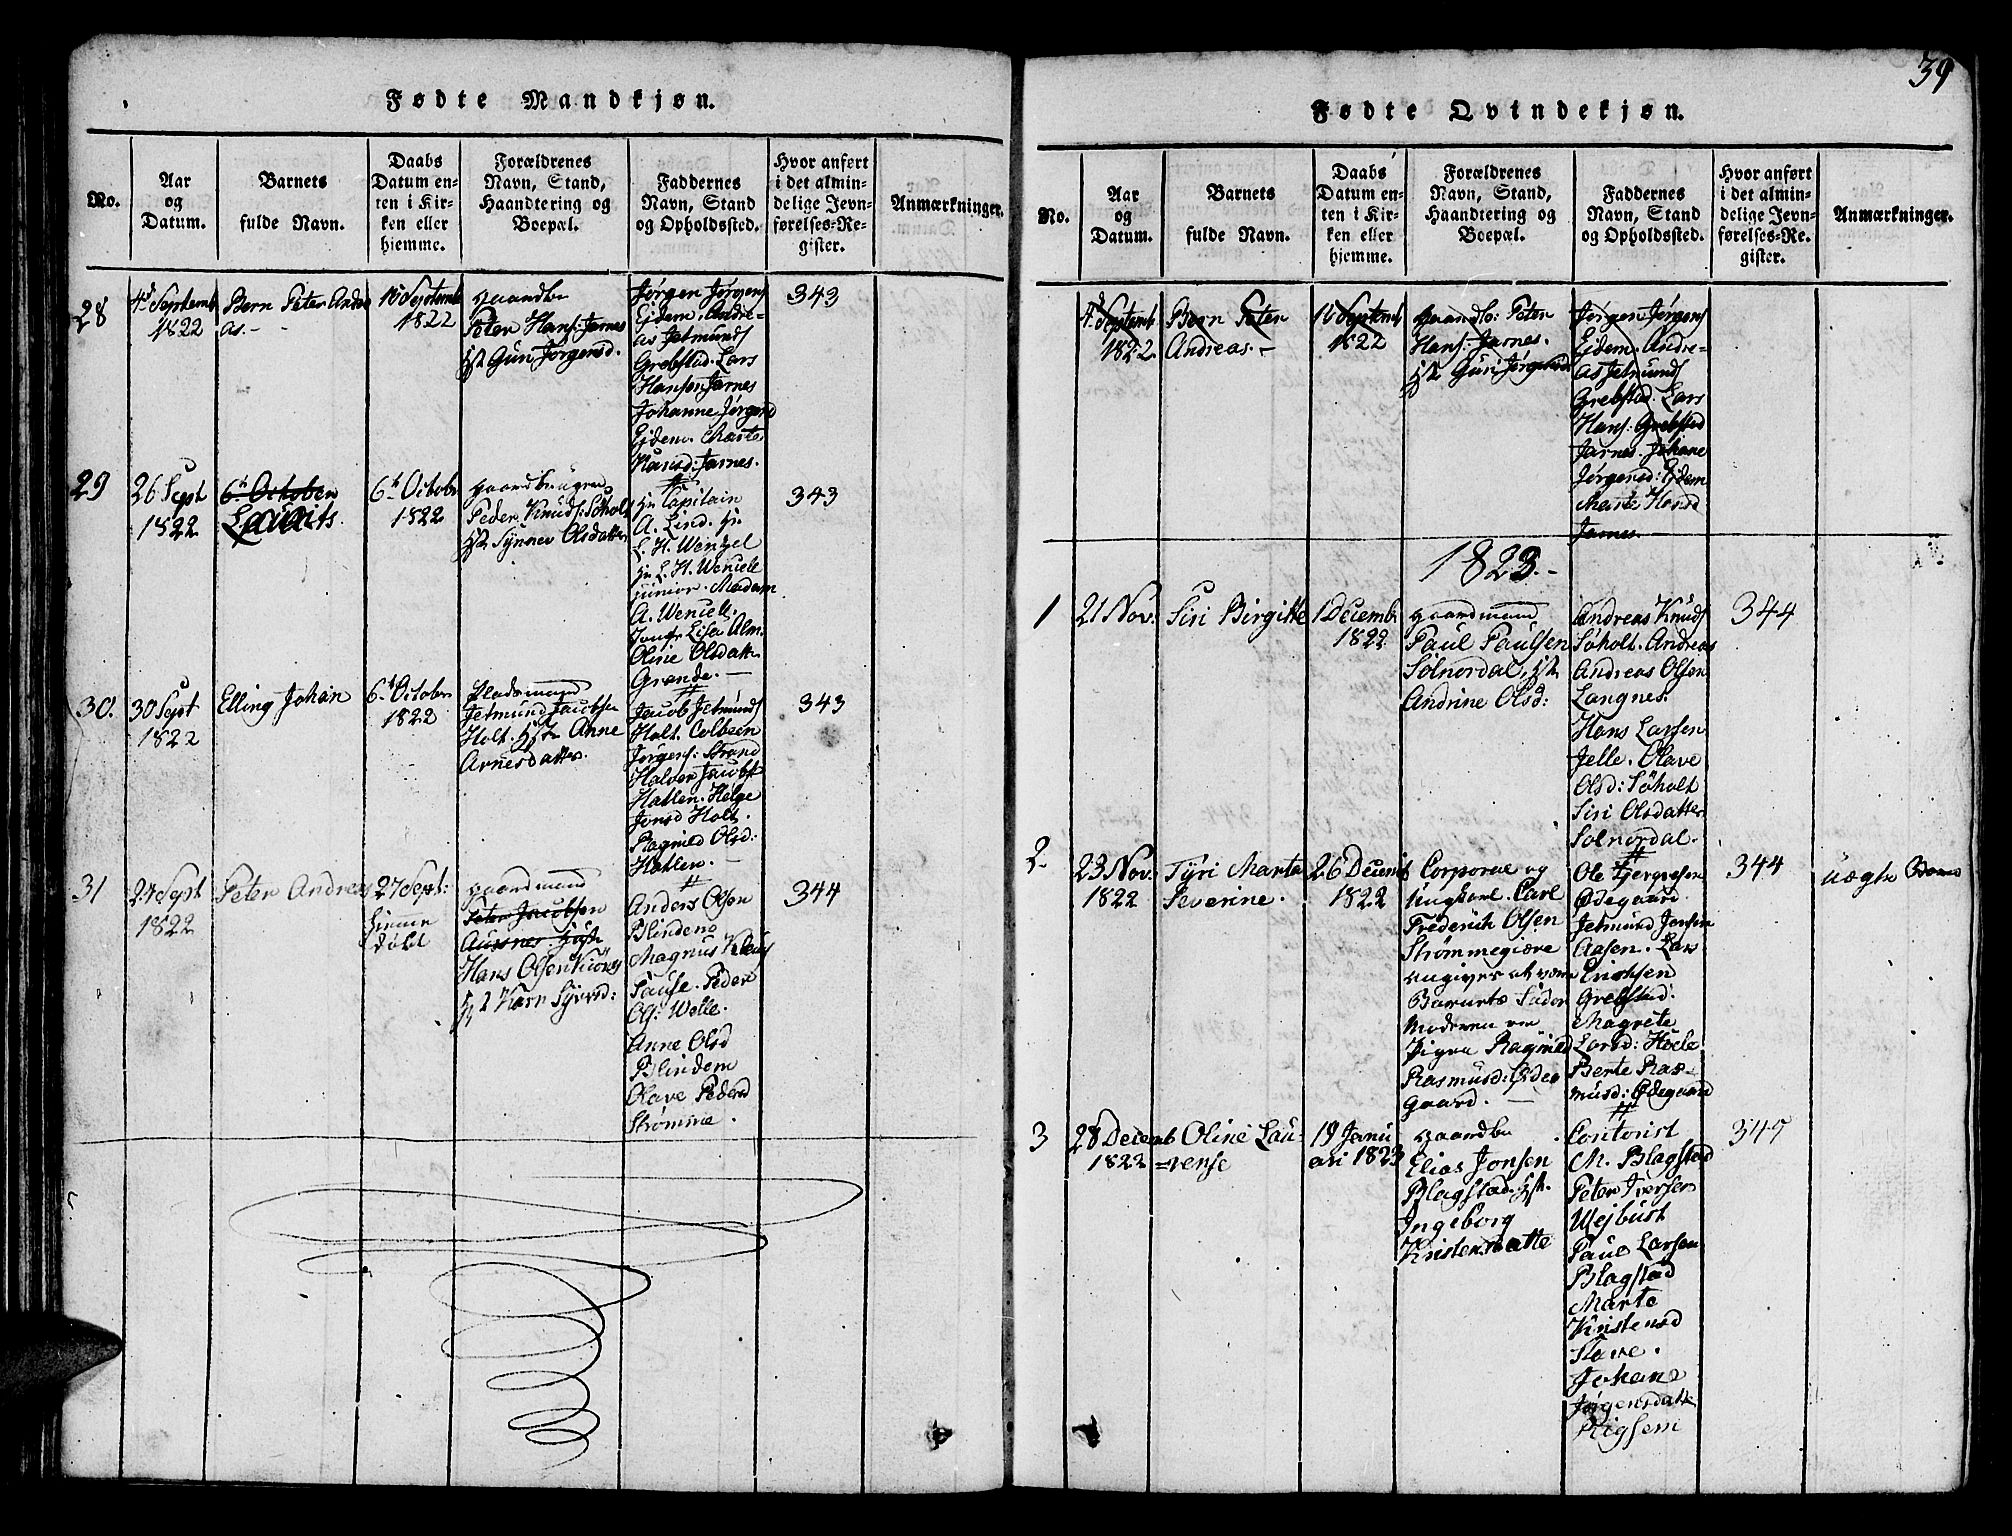 39
Fødte Mandkjøn.
No.
Aar
og
Datum.
Barnets
fulde Navn.
Daabs
Datum en-
ten i Kir-
ken eller
hjemme.
Forældrenes
Navn, Stand,
Haandtering og
Boepæl.
Faddernes
Navn, Stand
og Opholdssted.
Hvor anført
i det almin-
delige Jevn-
førelses-Re-
gister.
Anmærkninger.
28
4d Septemb
1822
Bern Peter Andre
as.-
Septemb
1822
Gaardbr
Peter Hans: Jarnes
Guri Jørgensd.
Jørgen Jørgens
Ejdem. Andre=
as Jetmunds
Grebstad. Lars
Hansen Jarnes
Johanne Jørgensd
Ejdem. Marte
Hansd: Jarnes.
343
29
26 Sept
1822
6te October
Laurits.
6te Octobr
1822
Gaardbruger
Peder Knuds: Søholt
Synnev Olsdatter
Hr Capitain
A. Lind. Hr.
L. H. Wenzel
Hr L. H. Wencell
junior. Madam
A. Wencell.
Jomfr Lisa Alm.
Oline Olsdatter
Grande. —
343
30.
30 Sept
1822
Elling Johan
6te Octobr
1822
Pladsmand
Jetmund Jacobsen
Holt. Anne
Arnesdatter.
Jacob Jetmunds
Holt. Colbeen
Jørgens: Strand
Haldor Jacobs
Hatlen. Helge
Jonsd Holt.
Ragnild Olsd:
Hatlen. —
343
31
24 Sept
1822
Peter Andreas
27 Sept:
hiemme
døbt
Gaardmand
Peter Jacobsen
Hans Olsen
Karn Syvrsd:
Anders Olsen
Blindem
Magnus
Peder
Ols: Welle.
Anne Olsd
Blindem
Olave Pedersd
Strømme.
344
Fødte Qvindekjøn.
No.
Aar
og
Datum.
Barnets
fulde Navn.
Daabs
Datum en-
ten i Kir-
ken eller
hjemme.
Forældrenes
Navn, Stand,
Haandtering og
Boepæl.
Faddernes
Navn, Stand
og Opholdssted.
Hvor anført
i det almin-
delige Jevn-
førelses-Re-
gister.
Anmærkninger.
4d Septemb
1822.
Bern Peter
Andreas.-
Septemb
1822
Gaardbr: Peter
Hans: Jarnes.
Guri Jørgensd
Jørgen Jørgens
Ejdem. Andre=
as Jetmunds
Grebstad. Lars
Hans: Grebstad
Jarnes. Johane
Jørgensd: Ejdem
Marte Hansd
Jarnes.
1823.-
1
21 Nov.
Siri Birgitte
1 Decemb
1822
Gaardmand
Paul Paulsen
Solnordal,
Andrine Olsd:
Andreas Knuds
Søholt. Andreas
Andreas Olsen
Langnes.
Hans Larsen
Jelle. Olave
Olsd: Søholt
Siri Olsdatter
Solnordal.
344
2
23 Nov.
1822
Tyri Marta
Severine.
26 Decemb
1822
Corporal og
Ungkarl Carl
Frederich Olsen
Strømmegiære
angives at være
Barnets Fader
Moderen er
Pigen Ragnild
Rasmusd: Ødes
Gaard. —
Ole
Ødegaard
Jetmund Jensen
Aasen. Lars
Erichsen
Grebstad.
Magrete
Larsd: Hoele
Berte Ras=
musd: Ødegaard
344
uægte
3
28 Decemb
1822
Oline Lau=
=rense
19 Janu
ari 1823
Gaardbr
Elias Jonsen
Blagstad.
Ingeborg
Kristensdatte
Contorist
M. Blagstad
Peter Iversen
Wejbust
Paul Larsen
Blagstad
Marte
Kristensd
Johane
Jørgensdatte
345